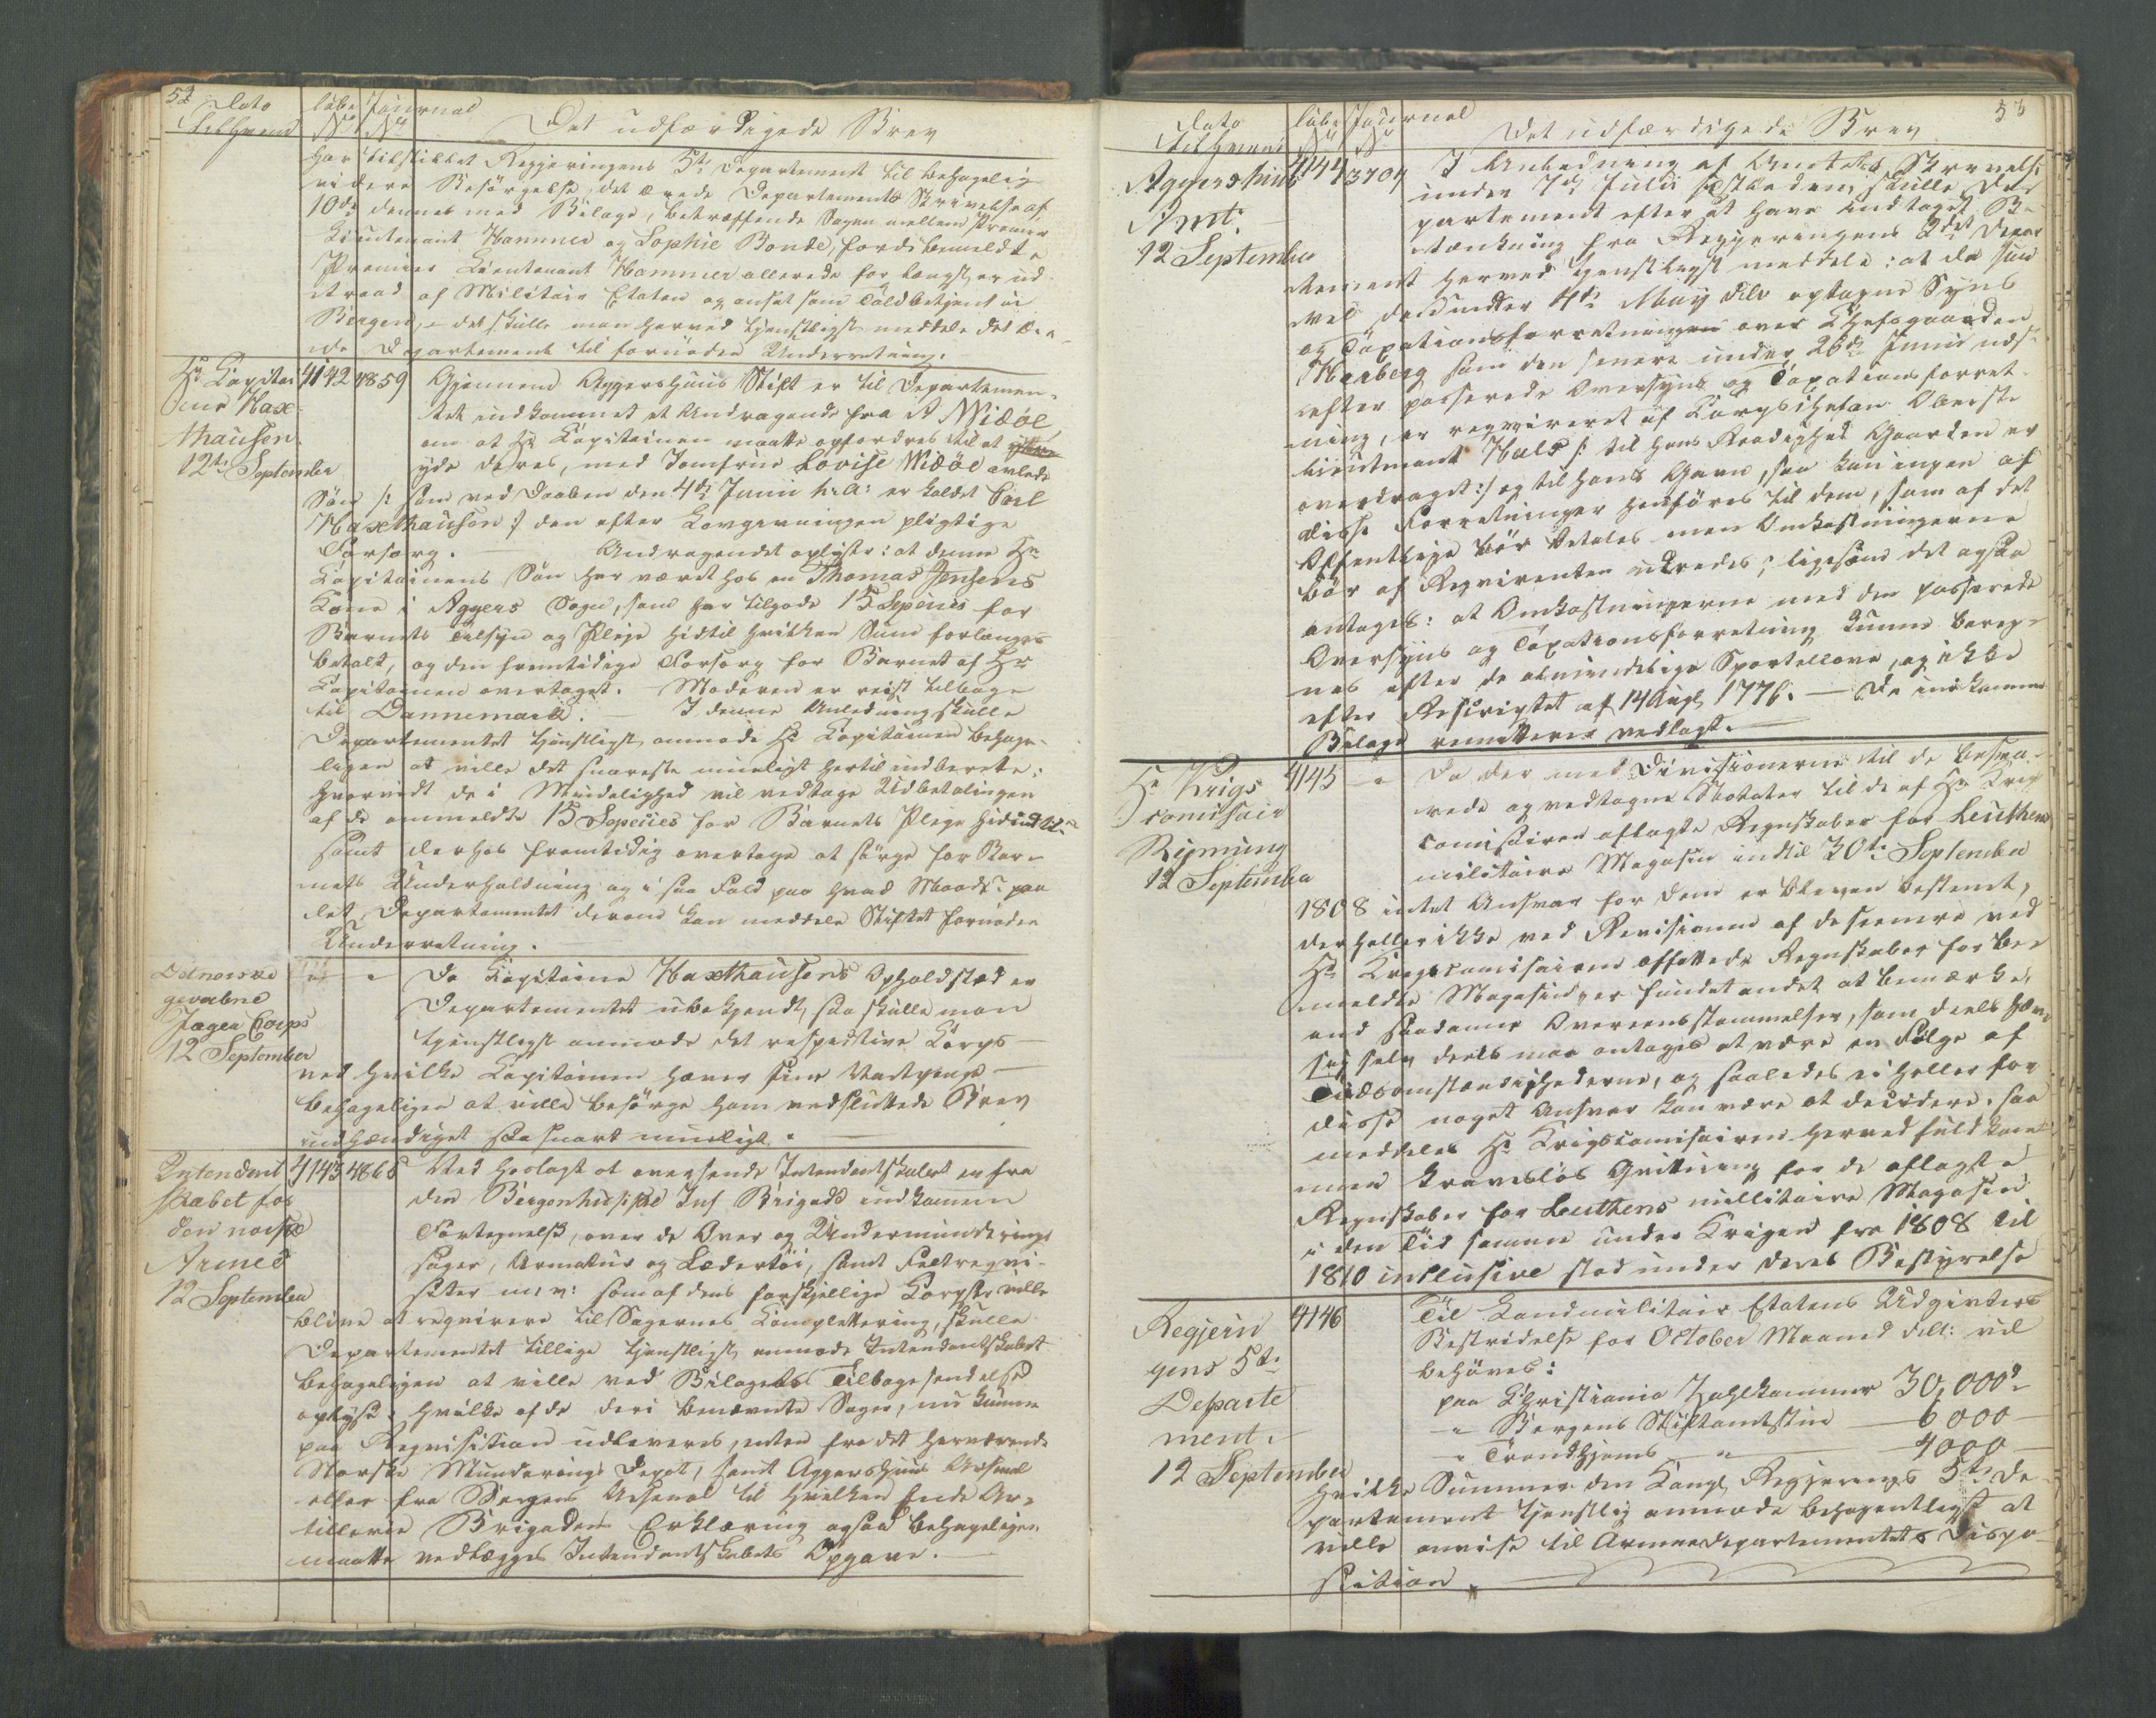 52 Dato
til hvem
Løbe No
Journal No
Det udfærdigede Brev
har tilstillet Regjeringens 5te Departement til behagelig
videre Besørgelse, det ærede Departements Skrivelse af
10de dennes med Bilage, betræffende Sagen mellem Premier
Lieutenant Hammer og Sophie Bonde, fordi bemeldte
Premier Lieutenant Hammer allerede for længst er ud-
traad af Militair Etaten og ansat som Toldbetjent i
Bergen, – det skulle man herved tjenstligst meddele det æren-
de Departement til fornøden Underretning.
Hr Capitai
ne Hax-
thausen.
12te September
4142 4859 Gjennem Aggershuus Stift er til Departemen-
tet indkommet et Andragende fra A Widöe
om at Hr Capitainen maatte opfordres til at
yde deres, med Jomfrue Lovise Widöe avlede
Søn /: som ved Daaben den 4de Junii h: a: er kaldt Carl
Haxthausen :/ den efter Lovgivningen pligtige
Forsorg. Andragendet oplyste: at denne Hr
Capitainens Søn har været hos en Thomas Jensens
Kone i Aggers Sogn, som har tilgode 15 Species for
Barnets Tilsyn og Pleje hidtil hvilken Sum forlanges
betalt, og den fremtidige Forsorg for Barnet af Hr
Capitainen overtaget. Moderen er reist tilbage
til Dannemark. – I denne Anledning skulle
Departementet tjenstligst anmode Hr Capitainen behage-
ligen at ville det snareste mueligt hertil indberette:
hvorvidt De i Mindelighed vil vedtage Udbetalingen
af de anmeldte 15 Species for Barnets Pleje hidindtil
samt derhos fremtidig overtage at sørge for Bar-
nets Underholdning og i saa Fald paa hvad Maade: paa
det Departementet derom kan meddele Stiftet fornøden
Underretning.
Det norske
gevorbne
Jæger Corps
12 September
Da Capitaine Haxthausens Opholdsted er
Departementet ubekjendt, saa skulle man
tjenstligst anmode det respective Corps –
ved hvilke Capitainen hæver sine Vartpenge –
behageligen at ville besørge ham vedsluttede Brev
indhændiget saa snart mueligt.
Intendant
skabet for
den norske
Armee
12 September
4143 4865 Ved hoslagt at oversende Intendantskabet en fra
den Bergenhusiske Inf Brigade indkommen
Fortegnelse, over de Over og Undermunderings
sager, Armatur og Lædertøi, samt Feltreqvi-
siter m: v: som af dens forskjellige Corpser ville
blive at reqvirere til Sagernes Complettering, skulle
Departementet tillige tjenstligst anmode Intendantskabet
behageligen at ville ved Bilagets Tilbagesendelse
oplyse: hvilke af de deri benævnte Sager, nu kunne
paa Reqvisition udleveres, enten fra det herværende
Norske Munderings Depot, samt Aggershuus Arsenal
eller fra Bergens Arsenal til hvilken Ende Ar-
tillerie Brigadens Erklæring ogsaa behageligen
maatte vedlægges Intendantskabets Opgave.
Dato
til hvem
Løbe No
Journal No
Det udfærdigede Brev
53
Aggershuus
Amt.
12 September
4144 3704 I Anledning af Amtets Skrivelse
under 7de Julii sidstleden, skulle De-
partement efter at have indtaget Be-
tænkning fra Regjeringens 2det Depar
tement herved tjenstligst meddele: at da saa
vel den under 4de May dito optagne Syns
og Taxationsforretningen over Chefsgaarden
Marberg som den senere under 26de Junii nest
efter passerede Oversyns og Taxationsforret-
ning, er reqvireret af Corpschefen Oberst
lieutnant Hals /: til hans Raadighed Gaarden er
overdraget :/ og til hans Gavn, saa kan ingen af
disse Forretninger henføres til dem, som af det
Offentlige bør betales men Omkostningerne
bør af Reqvirenten udredes; ligesom det ogsaa
antages: at Omkostningerne med den passerede
Oversyns og Taxationsforretning kunne bereg-
nes efter de almindelige Sportellove, og ikke
efter Rescriptet af 14 Aug 1776. – De indkomne
Bilage remitteres vedlagt.
Hr Krigs
comisair
Rynning
12 September
4145 " Da der med Divisionerne til de besva-
rede og vedtagne Notater til de af Hr Krigs
comisairen aflagte Regnskaber for Leuthens
militaire Magasin indtil 30te September
1808 intet Ansvar for dem er bleven bestemt,
der heller ikke ved Revisionen af de senere ved
Hr Krigscomisairen affattede Regnskaber for be-
meldte Magasin, er fundet andet at bemærke,
end saadanne Overeensstemmelser, som deels hæve
sig selv deels maa antages at være en Følge af
Tidsomstændighederne, og saaledes ei heller for
disse noget Ansvar kan være at decidere, saa
meddeles Hr Krigscomisairen herved fuldkom-
men kravesløs Qvittering for de aflagte
Regnskaber for Leuthens millitaire Magasin
i den Tid samme under Krigen fra 1808 til
1810 inclusive stod under deres Bestyrelse
Regjerin
gens 5te
Departe
ment.
12 September
4146 Til Landmilitair Etatens Udgivters
Bestridelse for October Maaned dette: vil
behøves:
paa Christiania Zahlkammer 30,000
" Bergens Stiftamtstue – 6000
" Trondhjems " – 4000
hvilke Summer den Kongl Regjerings 5te De-
partement tjenstlig anmode behagentligst at
ville anvise til Armeedepartementets Dispo-
sition